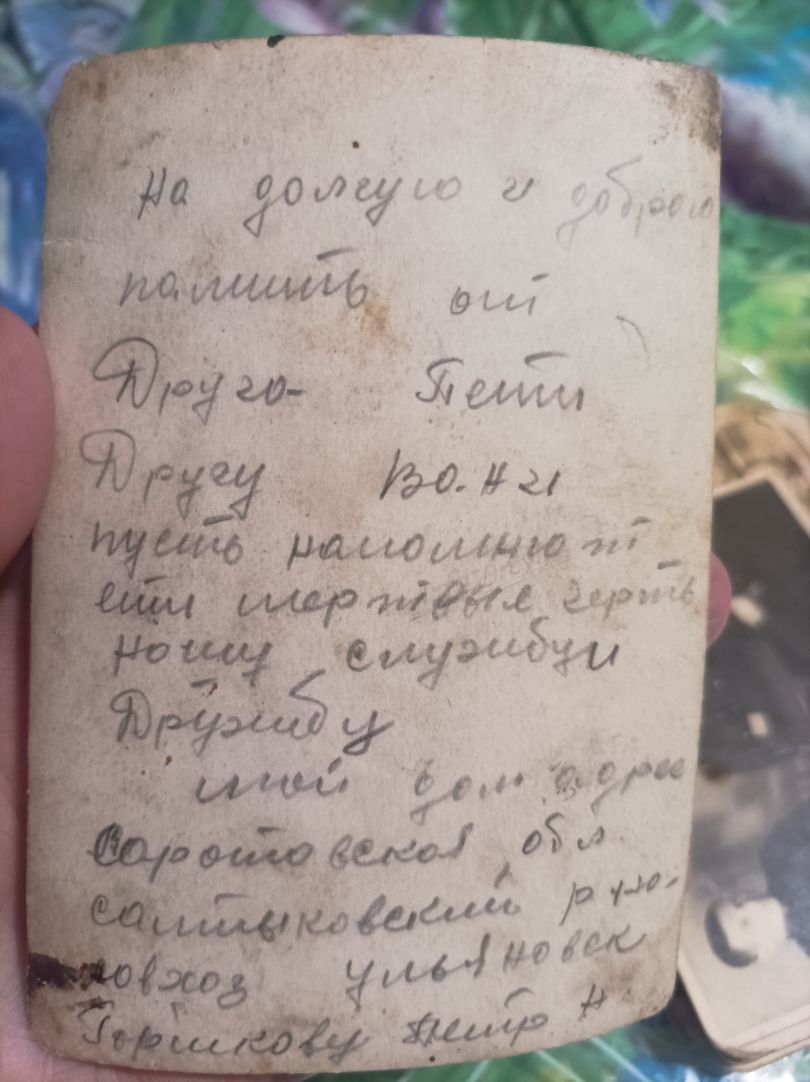 На долгую и доброю
памить от
Друга Пети
Другу Вани
пусть напомнют
эти мертвые черты
нашу службу и
Дружбу
мой дом адрес
Саратовская обл
салтыковский
совхоз ульяновск
Горшкову Петр Н